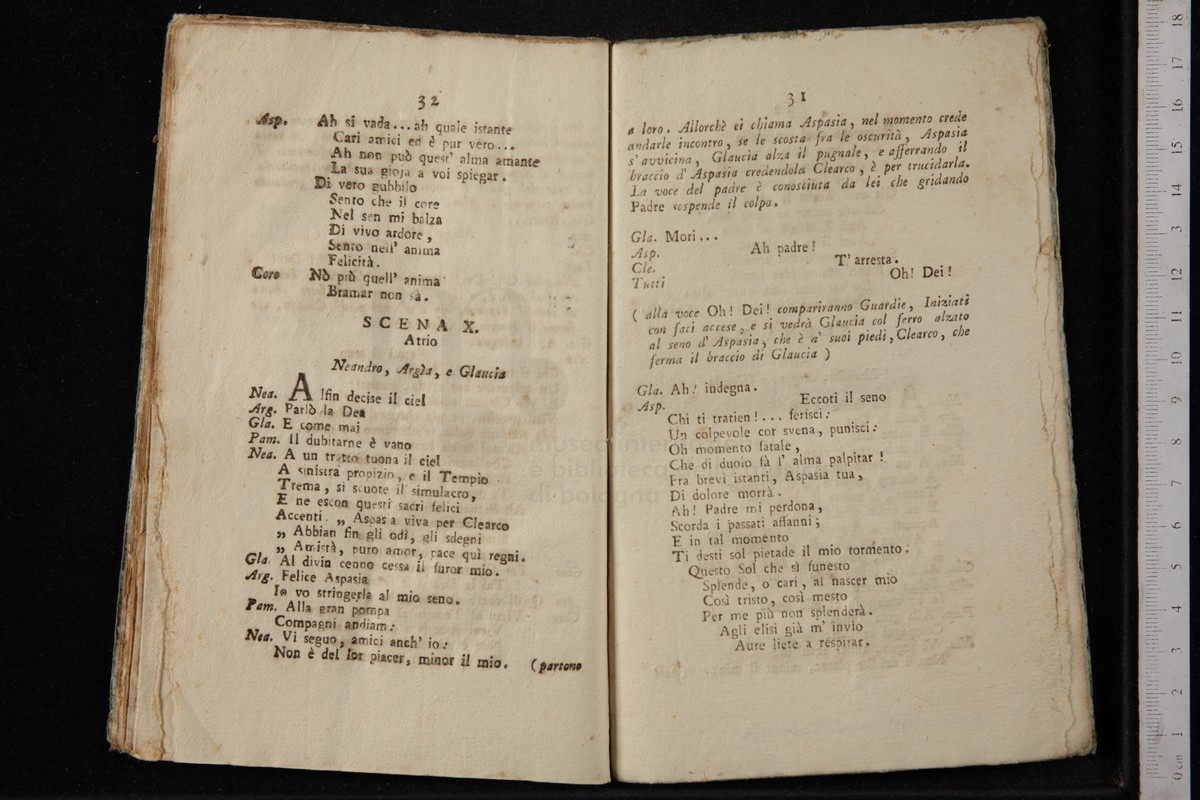 32
Asp. Ah si vada... ah quale istante
Cari amici ed è pur vero...
Ah non può quest' alma amante
La sua gioja a voi spiegar.
Di vero gubbilo
Sento che il core
Nel sen mi balza
Di vivo ardore,
Sento nell' anima
Felicità.
Coro Nò più quell' anima
Bramar non sà.
SCENA X.
Atrio
Neandro, Argìa, e Glaucia
Nea. Alfin decise il ciel
Arg. Parlò la Dea
Gla. E come mai
Pam. Il dubitarne è vano
Nea. A un tratto tuona il ciel
A sinistra propizio, e il Tempio
Trema, si scuote il simulacro,
E ne escon questi sacri felici
Accenti. „ Aspasia viva per Clearco
„ Abbian fin gli odi, gli sdegni
„ Amistà, puro amor, pace quì regni.
Gla. Al divin cenno cessa il furor mio.
Arg. Felice Aspasia
Io vo stringerla al mio seno.
Pam. Alla gran pompa
Compagni andiam:
Nea. Vi seguo, amici anch' io:
Non è del lor piacer, minor il mio. (partono
31
a loro. Allorchè ei chiama Aspasia, nel momento crede
andarle incontro, se le scosta fra le oscurità, Aspasia
s' avvicina, Glaucia alza il pugnale, e afferrando il
braccio d' Aspasia credendola Clearco, è per trucidarla.
La voce del padre è conosciuta da lei che gridando
Padre sospende il colpo.
Gla. Mori...
Asp. Ah padre!
Cle. T' arresta.
Tutti Oh! Dei!
( alla voce Oh! Dei! compariranno Guardie, Iniziati
con faci accese, e si vedrà Glaucia col ferro alzato
al seno d' Aspasia, che è a' suoi piedi, Clearco, che
ferma il braccio di Glaucia )
Gla. Ah! indegna.
Asp. Eccoti il seno
Chi ti tratien!... ferisci:
Un colpevole cor svena, punisci:
Oh momento fatale,
Che di duolo fà l' alma palpitar!
Fra brevi istanti, Aspasia tua,
Di dolore morrà.
Ah! Padre mi perdona,
Scorda i passati affanni;
E in tal momento
Ti desti sol pietade il mio tormento:
Questo Sol che sì funesto
Splende, o cari, al nascer mio
Così tristo, così mesto
Per me più non splenderà.
Agli elisi già m' invio
Aure liete a respirar.